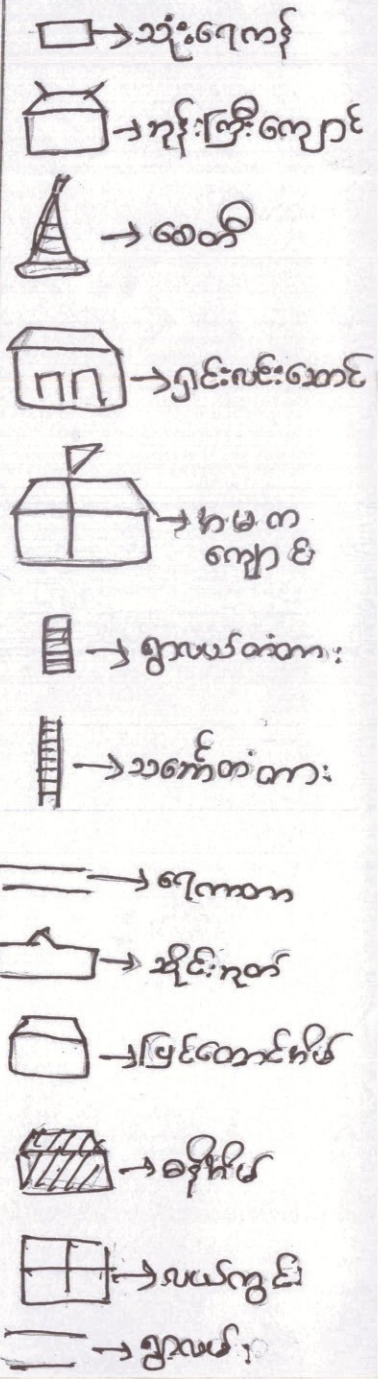 သုံးရေကန်
ဘုန်းကြီးကျောင်
စေတီ
ရှင်းလင်းဆောင်
အ.မ.က
ကျောင်း
ရွာလယ်တံတား
သင်္ဘောတံတား
ရေကာတာ
ဆိုင်းဘုတ်
မြင်တောင်အိမ်
ဓနိအိမ်
လယ်ကွင်း
ရွာလယ်